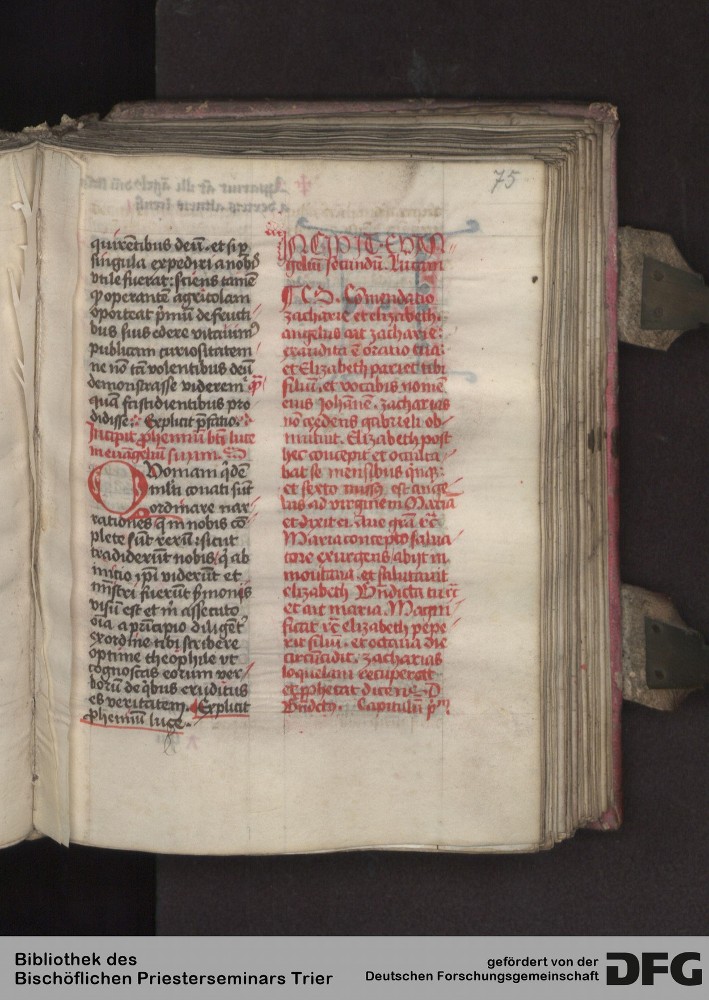 75
quirentibus deū. et si p̱
singula expediri a nobis
vtile fuerat: sciens tamē
ꝙ operantē agricolam
oporteat pͥmū de fructi
bus suis edere vitauimꝰ
publicam curiositatem
ne nō tā volentibus deū
demonstrasse videremᷣ
quā fastidientibus pro
didisse. Explicit p̄fatio.
Incipit prohemiū bt̄i luce
in euangeliū suum.
Quoniam qͥdē
mlti conati sūt
ordinare nar
rationes q̄ in nobis cō
plete sūt rerū: sicut
tradiderūt nobis q̄ ab
initio ip̄i viderūt et
mīstri fuerūt smonis
visū est et m̄ assecuto
oīa a principio diligent̄
ex ordine tibi scribere
optime theophile vt
cognoscas eorum ver
borū de qͥbus eruditus
es veritatem. Explicit
prohemiū luce.
INCIPIT EVAN
geliū secundū Lucam
Cōmendatio
zacharie et elizabeth.
angelus ait zacharie:
exaudita ē oratio tua:
et Elizabeth pariet tibi
filiū. et vocabis nomē
eius Johānē. zacharias
nō credens gabrieli ob
mutuit. Elizabeth post
hec concepit et occulta
bat se mensibus quinqꝫ:
et sexto missꝰ est ange
lus ad virginem Maria
et dixit ei. Aue grā rc̄
Maria concepto salua
tore exurgens abijt in
montana. et salutauit
elizabeth. Bn̄dicta tu rc̄
et ait maria. Magni
ficat rc̄ elizabeth pepe
rit filiū. et octaua die
circūcidit. zacharias
loquelam recuperat
et prophetat dicens.
Bn̄dictꝰ. Capitulū pͥm
Bibliothek des
Bischöflichen Priesterseminars Trier
gefördert von der
Deutschen Forschungsgemeinschaft
DFG